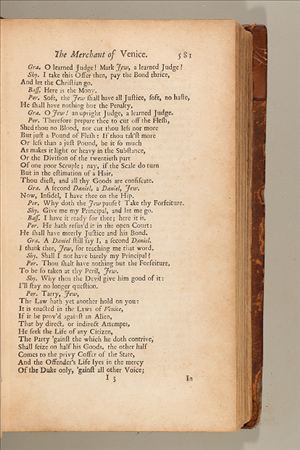 The Merchant of Venice. 581
Gra. O learned Judge! Mark Jew, a learned Judge!
Shy. I take this Offer then, pay the Bond thrice,
And let the Christian go.
Bass. Here is the Mony.
Por. Soft, the Jew shall have all Justice, soft, no haste,
He shall have nothing but the Penalty.
Gra. O Jew! an upright Judge, a learned Judge.
Por. Therefore prepare thee to cut off the Flesh,
Shed thou no Blood, nor cut thou less nor more
But just a Pound of Flesh: If thou tak'st more
Or less than a just Pound, be it so much
As makes it light or heavy in the Substance,
Or the Division of the twentieth part
Of one poor Scruple; nay, if the Scale do turn
But in the estimation of a Hair,
Thou diest, and all thy Goods are confiscate.
Gra. A second Daniel, a Daniel, Jew.
Now, Infidel, I have thee on the Hip.
Por. Why doth the Jew pause? Take thy Forfeiture.
Shy. Give me my Principal, and let me go.
Bass. I have it ready for thee; here it is.
Por. He hath refus'd it in the open Court:
He shall have meerly Justice and his Bond.
Gra. A Daniel still say I, a second Daniel.
I thank thee, Jew, for teaching me that word.
Shy. Shall I not have barely my Principal?
Por. Thou shalt have nothing but the Forfeiture,
To be so taken at thy Peril, Jew.
Shy. Why then the Devil give him good of it:
I'll stay no longer question.
Por. Tarry, Jew,
The Law hath yet another hold on you:
It is enacted in the Laws of Venice,
If it be prov'd against an Alien,
That by direct, or indirect Attempts,
He seek the Life of any Citizen,
The Party 'gainst the which he doth contrive,
Shall seize on half his Goods, the other half
Comes to the privy Coffer of the State,
And the Offender's Life lyes in the mercy
Of the Duke only, 'gainst all other Voice;
I 3 In